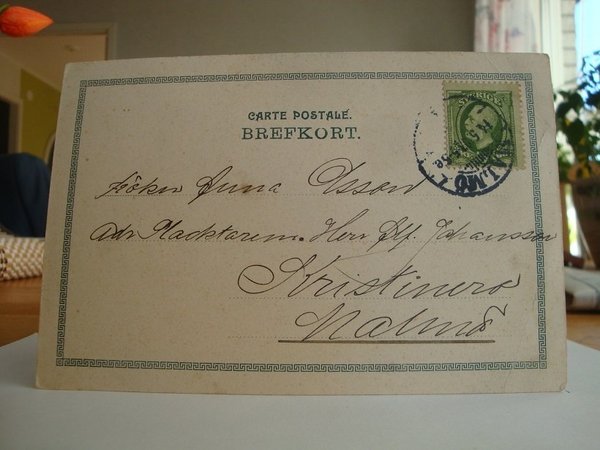 CARTE POSTALE.
BREFKORT.
SVERIGE
MALMÖ
Fröken Anna Olsson
Adr Macktarem. Herr Alf. Johansson
Kristinero
Malmö